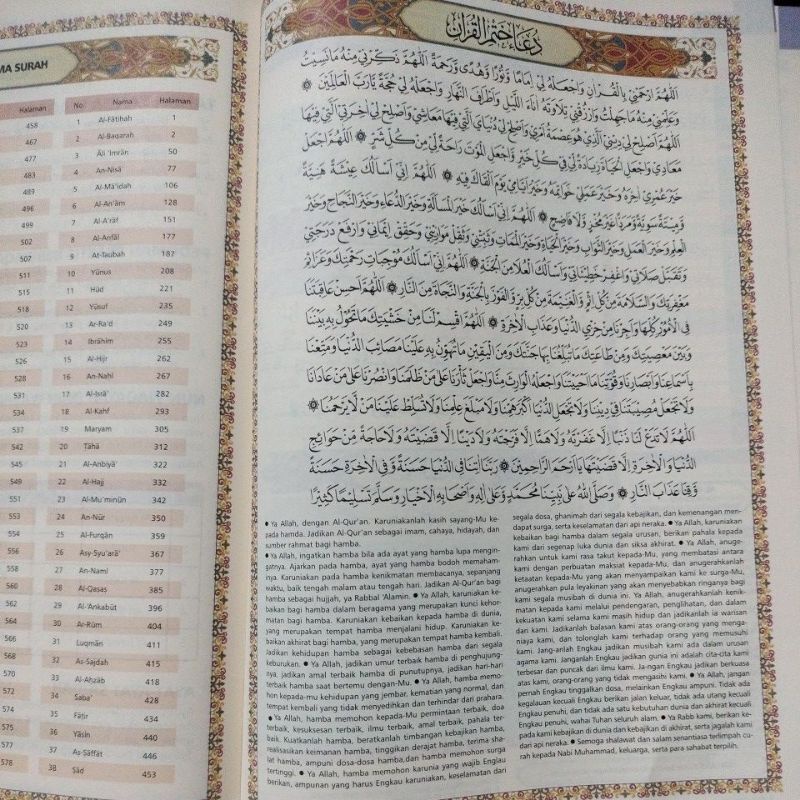 MA SURAH
Halaman No Nama Halaman
458 1 Al-Fātiḥah 1
467 2 Al-Baqarah 2
477 3 Āli 'Imrān 50
483 4 An-Nisā' 77
489 5 Al-Mā'idah 106
496 6 Al-An'ām 128
499 7 Al-A'rāf 151
502 8 Al-Anfāl 177
507 9 At-Taubah 187
511 10 Yūnus 208
515 11 Hūd 221
518 12 Yūsuf 235
520 13 Ar-Ra'd 249
523 14 Ibrāhīm 255
526 15 Al-Ḥijr 262
528 16 An-Naḥl 267
531 17 Al-Isrā' 282
534 18 Al-Kahf 293
537 19 Maryam 305
542 20 Ṭāhā 312
545 21 Al-Anbiyā' 322
549 22 Al-Ḥajj 332
551 23 Al-Mu'minūn 342
553 24 An-Nūr 350
554 25 Al-Furqān 359
556 26 Asy-Syu'arā' 367
558 27 An-Naml 377
560 28 Al-Qaṣaṣ 385
562 29 Al-'Ankabūt 396
564 30 Ar-Rūm 404
566 31 Luqmān 411
568 32 As-Sajdah 415
570 33 Al-Aḥzāb 418
34 Saba' 428
35 Fāṭir 434
575 36 Yāsīn 440
577 37 Aṣ-Ṣāffāt 446
578 38 Ṣād 453
دُعَاءُ خَتْمِ الْقُرْآنِ
اَللّٰهُمَّ ارْحَمْنِي بِالْقُرْآنِ وَاجْعَلْهُ لِي إِمَامًا وَنُوْرًا وَهُدًى وَرَحْمَةً اَللّٰهُمَّ ذَكِّرْنِي مِنْهُ مَا نَسِيْتُ
وَعَلِّمْنِي مِنْهُ مَا جَهِلْتُ وَارْزُقْنِي تِلَاوَتَهُ اٰنَاءَ اللَّيْلِ وَأَطْرَافَ النَّهَارِ وَاجْعَلْهُ لِي حُجَّةً يَارَبَّ الْعَالَمِيْنَ
اَللّٰهُمَّ أَصْلِحْ لِي دِيْنِي الَّذِي هُوَ عِصْمَةُ أَمْرِي وَأَصْلِحْ لِي دُنْيَايَ الَّتِي فِيْهَا مَعَاشِي وَأَصْلِحْ لِي اٰخِرَتِي الَّتِي فِيْهَا
مَعَادِي وَاجْعَلِ الْحَيَاةَ زِيَادَةً لِي فِي كُلِّ خَيْرٍ وَاجْعَلِ الْمَوْتَ رَاحَةً لِي مِنْ كُلِّ شَرٍّ اَللّٰهُمَّ اجْعَلْ
خَيْرَ عُمْرِي اٰخِرَهُ وَخَيْرَ عَمَلِي خَوَاتِمَهُ وَخَيْرَ أَيَّامِي يَوْمَ أَلْقَاكَ فِيْهِ اَللّٰهُمَّ إِنِّي أَسْأَلُكَ عِيْشَةً هَنِيَّةً
وَمِيْتَةً سَوِيَّةً وَمَرَدًّا غَيْرَ مُخْزٍ وَلَا فَاضِحٍ اَللّٰهُمَّ إِنِّي أَسْأَلُكَ خَيْرَ الْمَسْأَلَةِ وَخَيْرَ الدُّعَاءِ وَخَيْرَ النَّجَاحِ وَخَيْرَ
الْعِلْمِ وَخَيْرَ الْعَمَلِ وَخَيْرَ الثَّوَابِ وَخَيْرَ الْحَيَاةِ وَخَيْرَ الْمَمَاتِ وَثَبِّتْنِي وَثَقِّلْ مَوَازِيْنِي وَحَقِّقْ إِيْمَانِي وَارْفَعْ دَرَجَتِي
وَتَقَبَّلْ صَلَاتِي وَاغْفِرْ خَطِيْئَاتِي وَأَسْأَلُكَ الْعُلَا مِنَ الْجَنَّةِ اَللّٰهُمَّ إِنِّي أَسْأَلُكَ مُوْجِبَاتِ رَحْمَتِكَ وَعَزَائِمَ
مَغْفِرَتِكَ وَالسَّلَامَةَ مِنْ كُلِّ إِثْمٍ وَالْغَنِيْمَةَ مِنْ كُلِّ بِرٍّ وَالْفَوْزَ بِالْجَنَّةِ وَالنَّجَاةَ مِنَ النَّارِ اَللّٰهُمَّ أَحْسِنْ عَاقِبَتَنَا
فِي الْأُمُوْرِ كُلِّهَا وَأَجِرْنَا مِنْ خِزْيِ الدُّنْيَا وَعَذَابِ الْاٰخِرَةِ اَللّٰهُمَّ اقْسِمْ لَنَا مِنْ خَشْيَتِكَ مَا تَحُوْلُ بِهِ بَيْنَنَا
وَبَيْنَ مَعْصِيَتِكَ وَمِنْ طَاعَتِكَ مَا تُبَلِّغُنَا بِهَا جَنَّتَكَ وَمِنَ الْيَقِيْنِ مَا تُهَوِّنُ بِهِ عَلَيْنَا مَصَائِبَ الدُّنْيَا وَمَتِّعْنَا
بِأَسْمَاعِنَا وَأَبْصَارِنَا وَقُوَّتِنَا مَا أَحْيَيْتَنَا وَاجْعَلْهُ الْوَارِثَ مِنَّا وَاجْعَلْ ثَأْرَنَا عَلَى مَنْ ظَلَمَنَا وَانْصُرْنَا عَلَى مَنْ عَادَانَا
وَلَا تَجْعَلْ مُصِيْبَتَنَا فِي دِيْنِنَا وَلَا تَجْعَلِ الدُّنْيَا أَكْبَرَ هَمِّنَا وَلَا مَبْلَغَ عِلْمِنَا وَلَا تُسَلِّطْ عَلَيْنَا مَنْ لَا يَرْحَمُنَا
اَللّٰهُمَّ لَا تَدَعْ لَنَا ذَنْبًا إِلَّا غَفَرْتَهُ وَلَا هَمًّا إِلَّا فَرَّجْتَهُ وَلَا دَيْنًا إِلَّا قَضَيْتَهُ وَلَا حَاجَةً مِنْ حَوَائِجِ
الدُّنْيَا وَالْاٰخِرَةِ إِلَّا قَضَيْتَهَا يَا أَرْحَمَ الرَّاحِمِيْنَ رَبَّنَا اٰتِنَا فِي الدُّنْيَا حَسَنَةً وَفِي الْاٰخِرَةِ حَسَنَةً
وَقِنَا عَذَابَ النَّارِ وَصَلَّى اللهُ عَلَى نَبِيِّنَا مُحَمَّدٍ وَعَلَى اٰلِهِ وَأَصْحَابِهِ الْأَخْيَارِ وَسَلَّمَ تَسْلِيْمًا كَثِيْرًا
● Ya Allah, dengan Al-Qur'an. Karuniakanlah kasih sayang-Mu ke-
pada hamba. Jadikan Al-Qur'an sebagai imam, cahaya, hidayah, dan
sumber rahmat bagi hamba.
● Ya Allah, ingatkan hamba bila ada ayat yang hamba lupa mengin-
gatnya. Ajarkan pada hamba, ayat yang hamba bodoh memaham-
inya. Karuniakan pada hamba kenikmatan membacanya, sepanjang
waktu, baik tengah malam atau tengah hari. Jadikan Al-Qur'an bagi
hamba sebagai hujjah, ya Rabbal 'Alamin. ● Ya Allah, karuniakan ke-
baikan bagi hamba dalam beragama yang merupakan kunci kehor-
matan bagi hamba. Karuniakan kebaikan kepada hamba di dunia,
yang merupakan tempat hamba menjalani hidup. Karuniakan ke-
baikan akhirat bagi hamba, yang merupakan tempat hamba kembali.
Jadikan kehidupan hamba sebagai kebebasan hamba dari segala
keburukan. ● Ya Allah, jadikan umur terbaik hamba di penghujung-
nya, jadikan amal terbaik hamba di penutupnya, jadikan hari-hari
terbaik hamba saat bertemu dengan-Mu. ● Ya Allah, hamba memo-
hon kepada-mu kehidupan yang jembar, kematian yang normal, dan
tempat kembali yang tidak menyedihkan dan terhindar dari prahara.
● Ya Allah, hamba memohon kepada-Mu permintaan terbaik, doa
terbaik, kesuksesan terbaik, ilmu terbaik, amal terbaik, pahala ter-
baik. Kuatkanlah hamba, beratkanlah timbangan kebajikan hamba,
realisasikan keimanan hamba, tinggikan derajat hamba, terima sha-
lat hamba, ampuni dosa-dosa hamba,dan hamba memohon surga
tertinggi. ● Ya Allah, hamba memohon karunia yang wajib Engkau
berikan, ampunan yang harus Engkau karuniakan, keselamatan dari
segala dosa, ghanimah dari segala kebajikan, dan kemenangan men-
dapat surga, serta keselamatan dari api neraka. ● Ya Allah, karuniakan
kebaikan bagi hamba dalam segala urusan, berikan pahala kepada
kami dari segenap luka dunia dan siksa akhirat. ● Ya Allah, anuge-
rahkan untuk kami rasa takut kepada-Mu, yang membatasi antara
kami dengan perbuatan maksiat kepada-Mu, dan anugerahkanlah
ketaatan kepada-Mu yang akan menyampaikan kami ke surga-Mu,
anugerahkan pula keyakinan yang akan menyebabkan ringanya bagi
kami segala musibah di dunia ini. Ya Allah, anugerahkanlah kenik-
matan kepada kami melalui pendengaran, penglihatan, dan dalam
kekuatan kami selama kami masih hidup dan jadikanlah ia warisan
dari kami. Jadikanlah balasan kami atas orang-orang yang menga-
niaya kami, dan tolonglah kami terhadap orang yang memusuhi
kami. Jang-anlah Engkau jadikan musibah kami ada dalam urusan
agama kami. Janganlah Engkau jadikan dunia ini adalah cita-cita kami
terbesar dan puncak dari ilmu kami. Ja-ngan Engkau jadikan berkuasa
atas kami, orang-orang yang tidak mengasihi kami. ● Ya Allah, jangan
pernah Engkau tinggalkan dosa, melainkan Engkau ampuni. Tidak ada
kegalauan kecuali Engkau, berikan jalan keluar, tidak ada utang kecuali
Engkau penuhi, dan tidak ada satu kebutuhan dunia dan akhirat kecuali
Engkau penuhi, wahai Tuhan seluruh alam. ● Ya Rabb kami, berikan ke-
pada kami kebajikan di dunia dan kebajikan di akhirat, serta jagalah kami
dari api neraka. ● Semoga shalawat dan salam senantiasa terlimpah cu-
rah kepada Nabi Muhammad, keluarga, serta para sahabat terpilih.